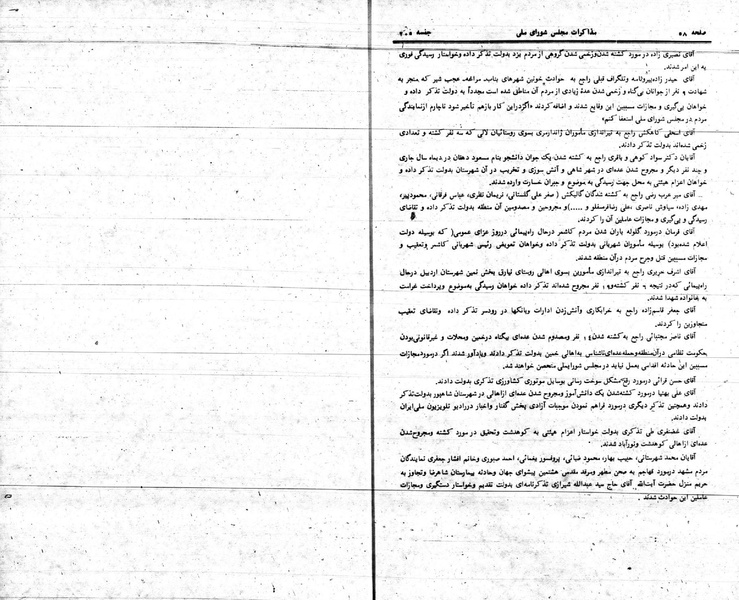 صفحه ۵۸ مذاکرات مجلس شورای ملی جلسه
آقای نصیری زاده درمورد کشته شدن‌وزخمی شدن گروهی ازمردم یزد بدولت تذکر داده وخواستار رسیدگی فوری
به این امر شدند.
آقای حیدر زاده وتلگراف قبلی راجع به حوادث خونین شهرهای بناب، مراغه، عجب شیر که منجر به
شهادت نفر از جوانان بی‌گناه و زخمی شدن عدهٔ زیادی از مردم آن مناطق شده است مجدداً به دولت تذکر داده و
خواهان پی‌گیری و مجازات مسببین این وقایع شدند و اضافه کردند «اگردراین کار بازهم تأخیر شود ناچارم ازنمایندگی
مردم در مجلس شورای ملی استعفا کنم»
آقای اسحقی کاهکش راجع به تیراندازی مأموران ژاندارمری بسوی روستائیان لالی که سه نفر کشته و تعدادی
زخمی شده‌اند بدولت تذکر دادند.
آقایان دکتر سواد کوهی و باقری راجع به کشته شدن یک جوان دانشجو بنام مسعود دهقان در دیماه سال جاری
و چند نفر دیگر و مجروح شدن عده‌ای در شهر شاهی و آتش سوزی و تخریب در آن شهرستان بدولت تذکر داده و
خواهان اعزام هیئتی به محل جهت رسیدگی به موضوع و جبران خسارت وارده شدند.
آقای میر عرب رضی راجع به کشته شدگان گالیکش ( صفر علی گلستانی، نریمان نظری، عباس فرقانی، محمودپیر،
مهدی زاده، سیاوش ناصری، علی رضا ..... )ومجروحین و مصدومین آن منطقه بدولت تذکر داده و تقاضای
رسیدگی و پی‌گیری و مجازات عاملین آن را کردند.
آقای فرمان درمورد گلوله باران شدن مردم کاشمر درحال راه‌پیمائی درروز عزای عمومی( که بوسیله دولت
اعلام شده‌بود) بوسیله مأموران شهربانی بدولت تذکر داده وخواهان تعویض رئیس شهربانی کاشمر وتعقیب و
مجازات مسببین قتل وجرح مردم درآن منطقه شدند.
آقای اشرف حریری راجع به تیراندازی مأمورین بسوی اهالی روستای نیارق بخش نمین شهرستان اردبیل درحال
راه‌پیمائی که‌در نتیجه نفر کشته و نفر مجروح شده‌اند تذکر داده خواهان رسیدگی به‌موضوع وپرداخت غرامت
به خانواده شهدا شدند.
آقای جعفر قاسم‌زاده راجع به خرابکاری وآتش‌زدن ادارات وبانکها در رودسر تذکر داده وتقاضای تعقیب
متجاوزین را کردند.
آقای ناصر مجتبائی راجع به‌کشته شدن نفر ومصدوم شدن عده‌ای بیگناه درخمین ومحلات و غیرقانونی‌بودن
حکومت نظامی درآن‌منطقه‌وحمله‌عده‌ای‌ناشناس به‌اهالی خمین بدولت تذکر دادند ویادآور شدند اگر درموردمجازات
مسببین این حادثه اقدامی بعمل نیاید در مجلس شورایملی متحصن خواهند شد.
آقای حسن قرائی درمورد رفع مشکل سوخت رسانی بوسایل موتوری کشاورزی تذکری بدولت دادند.
آقای علی بهنیا درمورد کشته‌شدن یک دانش‌آموز ومجروح شدن عده‌ای ازاهالی در شهرستان شاهپور بدولت‌تذکر
دادند وهمچنین تذکر دیگری درمورد فراهم نمودن موجبات آزادی پخش گفتار واخبار دررادیو تلویزیون ملی‌ایران
بدولت دادند.
آقای غضنفری طی تذکری بدولت خواستار اعزام هیئتی به کوهدشت وتحقیق در مورد کشته ومجروح‌شدن
عده‌ای ازاهالی کوهدشت ونورآباد شدند.
آقایان محمد شهرستانی، حبیب بهار، محمود ضیائی، پروفسور یغمائی، احمد صبوری وخانم افشار جعفری نمایندگان
مردم مشهد درمورد تهاجم به صحن مطهر ومرقد مقدس هشتمین پیشوای جهان وحادثه بیمارستان شاهرضا وتجاوز به
حریم منزل حضرت آیت‌الله آقای حاج سید عبدالله شیرازی تذکرنامه‌ای بدولت تقدیم وخواستار دستگیری ومجازات
عاملین این حوادث شدند.